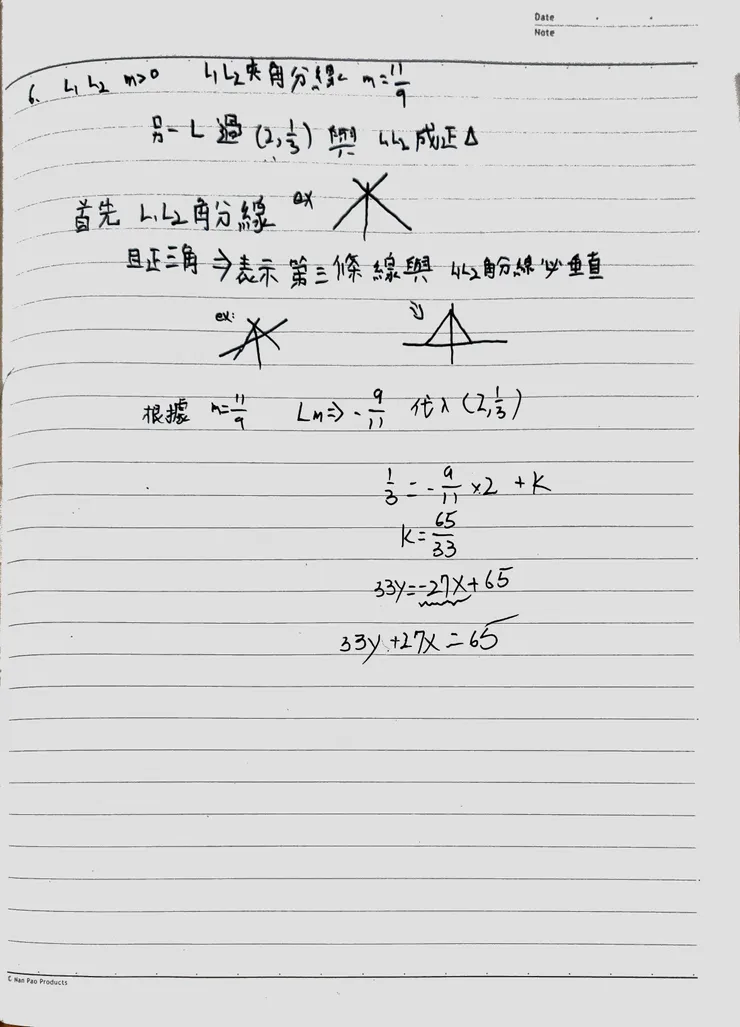 Date
Note
6. L₁ L₂ m>0 L₁L₂夾角分線 m=11/9
另一 L 過 (2, 1/3) 與 L₁L₂成正△
首先 L₁L₂角分線 ex
且正三角 ⇒表示第三條線與 L₁L₂角分線必垂直
ex:
根據 m=11/9 Lm⇒ -9/11 代入 (2, 1/3)
1/3 = -9/11 ×2 +K
K=65/33
33y=-27x+65
33y+27x=65
© Nan Pao Products